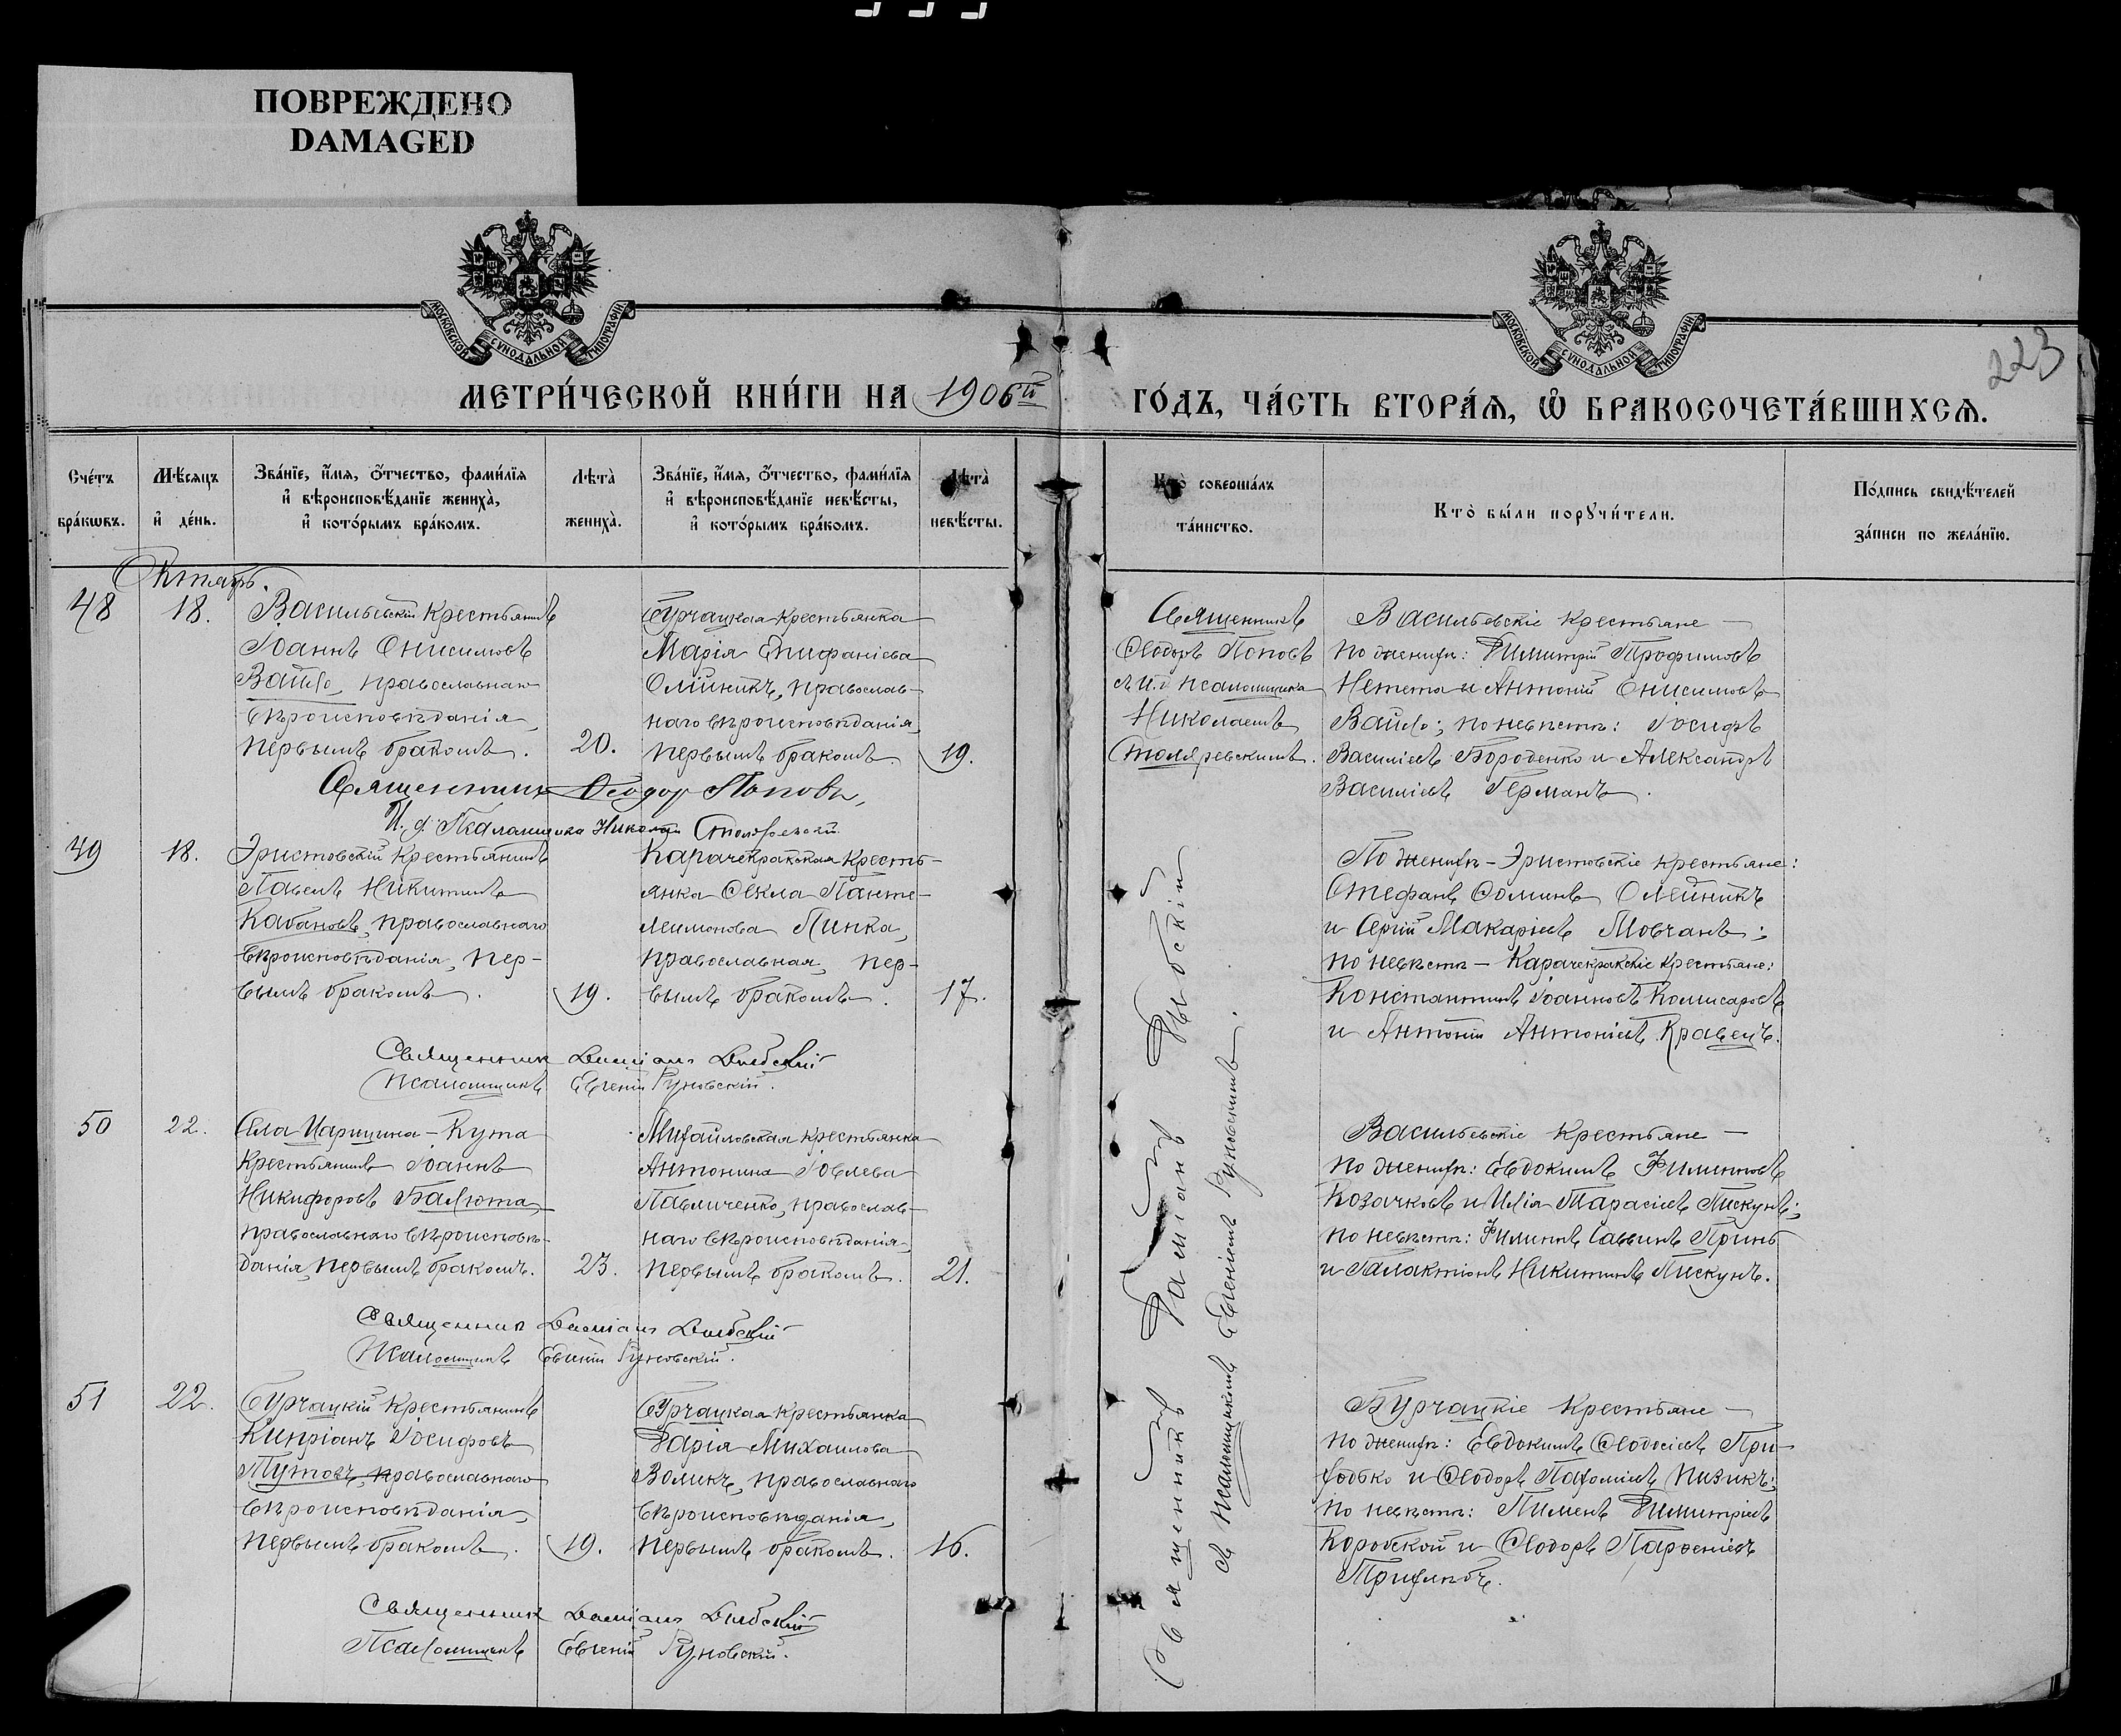 ПОВРЕЖДЕНО
DAMAGED
МОСКОВСКОЙ СѴНОДАЛЬНОЙ ТИПОГРАФІИ.
МОСКОВСКОЙ СѴНОДАЛЬНОЙ ТИПОГРАФІИ.
223
МЕТРИ́ЧЕСКОЙ КНИ́ГИ НА 1906й ГО́ДЪ, ЧА́СТЬ ВТОРА́Я, Ѡ БРАКОСОЧЕТА́ВШИХСЯ.
Сче́тъ
бра́кѡвъ.
Мѣ́сяцъ
и҆ де́нь.
Зва́нїе, и҆́мя, ѻ҆́тчество, фами́лїя
и҆ вѣроисповѣ́данїе жениха̀,
и҆ кото́рымъ бра́комъ.
Лѣта̀
жениха̀.
Зва́нїе, и҆́мя, ѻ҆́тчество, фами́лїя
и҆ вѣроисповѣ́данїе невѣ́сты,
и҆ кото́рымъ бра́комъ.
Лѣта̀
невѣ́сты.
Кто̀ соверша́лъ
та́инство.
Кто̀ бы́ли порꙋчи́тели.
По́дпись свидѣ́телей
за́писи по жела́нїю.
Октябрь.
48
18.
Васильевскій крестьянинъ
Іоаннъ Онисимовъ
Вайло, православнаго
вѣроисповѣданія,
первымъ бракомъ.
20.
Бурчацкая крестьянка
Марія Епифаніева
Олійникъ, православ-
наго вѣроисповѣданія,
первымъ бракомъ
19.
Священникъ
Ѳеодоръ Поповъ
съ и. д. псаломщика
Николаемъ
Столяревскимъ.
Васильевскіе крестьяне —
по женихѣ: Димитрій Трофимовъ
Нетета и Антоній Онисимовъ
Вайло; по невѣстѣ: Іосифъ
Василіевъ Бороденко и Александръ
Василіевъ Германъ.
Священникъ Ѳеодоръ Поповъ,
И. д. Псаломщика Николай Столяревскій
49
18.
Эристовскій крестьянинъ
Павелъ Никитинъ
Кабановъ, православнаго
вѣроисповѣданія, пер-
вымъ бракомъ.
19.
Карачекракская кресть-
янка Ѳекла Панте-
леимонова Линка,
православная, пер-
вымъ бракомъ.
17.
По женихѣ — Эристовскіе крестьяне:
Стефанъ Ѳоминъ Олейникъ
и Сергій Макаріевъ Мовчанъ;
по невѣстѣ — Карачекракскіе крестьяне:
Константинъ Іоанновъ Комисаровъ
и Антоній Антоніевъ Кравецъ.
Священникъ Даміанъ Дыбскій
Псаломщикъ Евгеній Руновскій.
50
22.
Села Царицина-Кута
крестьянинъ Іоаннъ
Никифоровъ Балюта,
православнаго вѣроисповѣ-
данія, первымъ бракомъ.
23.
Михайловская крестьянка
Антонина Іовлева
Павличенко, православ-
наго вѣроисповѣданія,
первымъ бракомъ.
21.
Васильевскіе крестьяне —
по женихѣ: Евдокимъ Филипповъ
Козачковъ и Илія Тарасіевъ Пискунъ;
по невѣстѣ: Филиппъ Саввинъ Принь
и Галактіонъ Никитинъ Пискунъ.
Священникъ Даміанъ Дыбскій
Псаломщикъ Евгеній Руновскій.
51
22.
Бурчацкій крестьянинъ
Кипріанъ Іосифовъ
Тутовъ, православнаго
вѣроисповѣданія,
первымъ бракомъ.
19.
Бурчацкая крестьянка
Дарія Михаилова
Воликъ, православнаго
вѣроисповѣданія,
первымъ бракомъ.
16.
Бурчацкіе крестьяне —
по женихѣ: Евдокимъ Ѳеодосіевъ При-
ходько и Ѳеодоръ Пахоміевъ Пизикъ;
по невѣстѣ: Пименъ Димитріевъ
Коробской и Ѳеодоръ Парѳеніевъ
Священникъ Даміанъ Дыбскій
Псаломщикъ Евгеній Руновскій.
Священникъ Даміанъ Дыбскій
съ псаломщикомъ Евгеніемъ Руновскимъ.